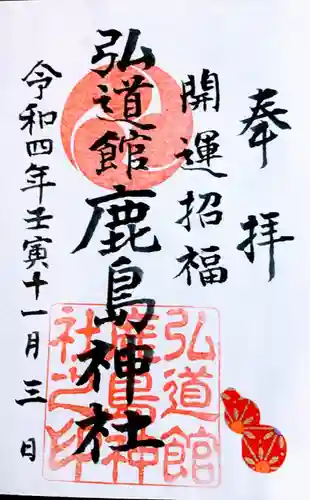 奉拝
開運招福
弘道館鹿島神社
令和四年壬寅十一月三日
弘道館
鹿島神
社之印